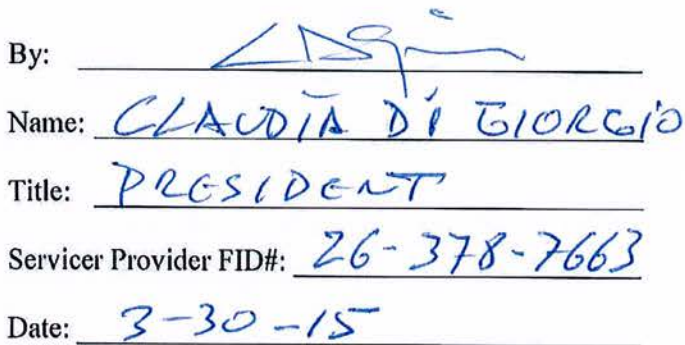 By:
Name: CLAUDIA DI GIORGIO
Title: PRESIDENT
Servicer Provider FID#: 26-378-7663
Date: 3-30-15